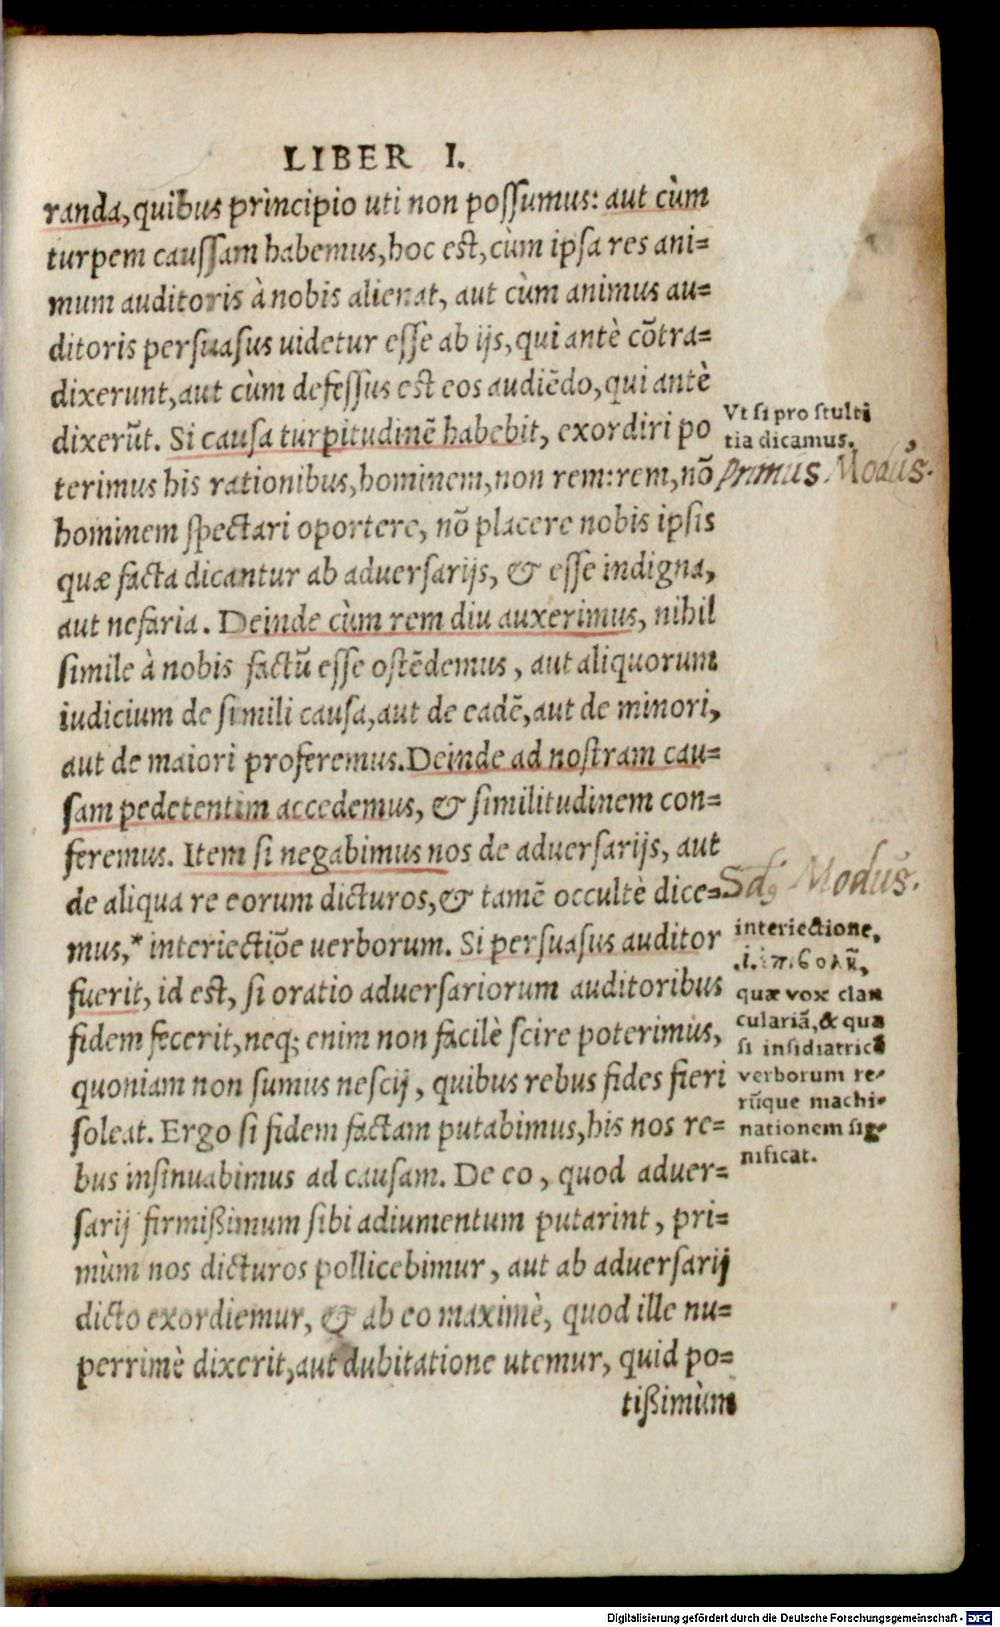 LIBER I.
randa, quibus prìncipio uti non possumus: aut cùm
turpem caussam habemus, hoc est, cùm ipsa res ani=
mum auditoris à nobis alienat, aut cùm animus au=
ditoris persuasus uidetur esse ab ijs, qui antè cōtra=
dixerunt, aut cùm defessus est eos audiēdo, qui antè
dixerūt. Si causa turpitudinē habebit, exordiri po
terimus his rationibus, hominem, non rem: rem, nō
hominem spectari oportere, nō placere nobis ipsis
quæ facta dicantur ab aduersarijs, & esse indigna,
aut nefaria. Deinde cùm rem diu auxerimus, nihil
simile à nobis factū esse ostēdemus, aut aliquorum
iudicium de simili causa, aut de eadē, aut de minori,
aut de maiori proferemus. Deinde ad nostram cau=
sam pedetentim accedemus, & similitudinem con=
feremus. Item si negabimus nos de aduersarijs, aut
de aliqua re eorum dicturos, & tamē occultè dice=
mus, * interiectiōe uerborum. Si persuasus auditor
fuerit, id est, si oratio aduersariorum auditoribus
fidem fecerit, neq; enim non facilè scire poterimus,
quoniam non sumus nescij, quibus rebus fides fieri
soleat. Ergo si fidem factam putabimus, his nos re=
bus insinuabimus ad causam. De eo, quod aduer=
sarij firmißimum sibi adiumentum putarint, pri=
mùm nos dicturos pollicebimur, aut ab aduersarij
dicto exordiemur, & ab eo maximè, quod ille nu=
perrimè dixerit, aut dubitatione utemur, quid po=
tißimùm
Vt si pro stulti
tia dicamus.
Primus Modus.
Modus.
interiectione,
.i. π. Ϭολῦ,
quæ vox clan
culariā, & qua
si insidiatricē
verborum re-
rūque machi-
nationem sig-
nificat.
Digitalisierung gefördert durch die Deutsche Forschungsgemeinschaft - DFG